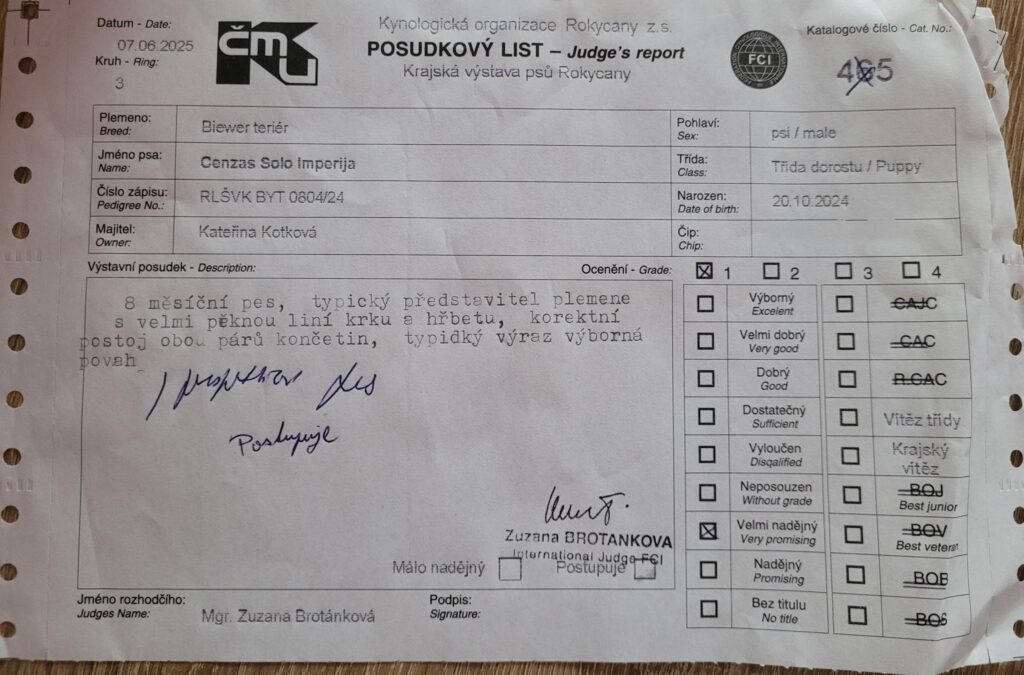 Datum - Date:
07.06.2025
Kruh - Ring:
3
ČMKU
Kynologická organizace Rokycany z.s.
POSUDKOVÝ LIST – Judge's report
Krajská výstava psů Rokycany
FCI
Katalogové číslo - Cat. No.:
Plemeno:
Breed:
Biewer teriér
Pohlaví:
Sex:
psi / male
Jméno psa:
Name:
Cenzas Solo Imperija
Třída:
Class:
Třída dorostu / Puppy
Číslo zápisu:
Pedigree No.:
RLŠVK BYT 0804/24
Narozen:
Date of birth:
20.10.2024
Majitel:
Owner:
Kateřina Kotková
Čip:
Chip:
Výstavní posudek - Description:
Ocenění - Grade:
1 2 3 4
8 měsíční pes, typický představitel plemene
s velmi pěknou liní krku a hřbetu, korektní
postoj obou párů končetin, typidký výraz výborná
povah
Postupuje
Zuzana BROTANKOVA
International Judge FCI
Málo nadějný Postupuje
Výborný
Excelent
CAJC
Velmi dobrý
Very good
CAC
Dobrý
Good
R.CAC
Dostatečný
Sufficient
Vítěz třídy
Vyloučen
Disqalified
Krajský
vítěz
Neposouzen
Without grade
BOJ
Best junior
Velmi nadějný
Very promising
BOV
Best veteran
Nadějný
Promising
BOB
Bez titulu
No title
BOS
Jméno rozhodčího:
Judges Name:
Mgr. Zuzana Brotánková
Podpis:
Signature: